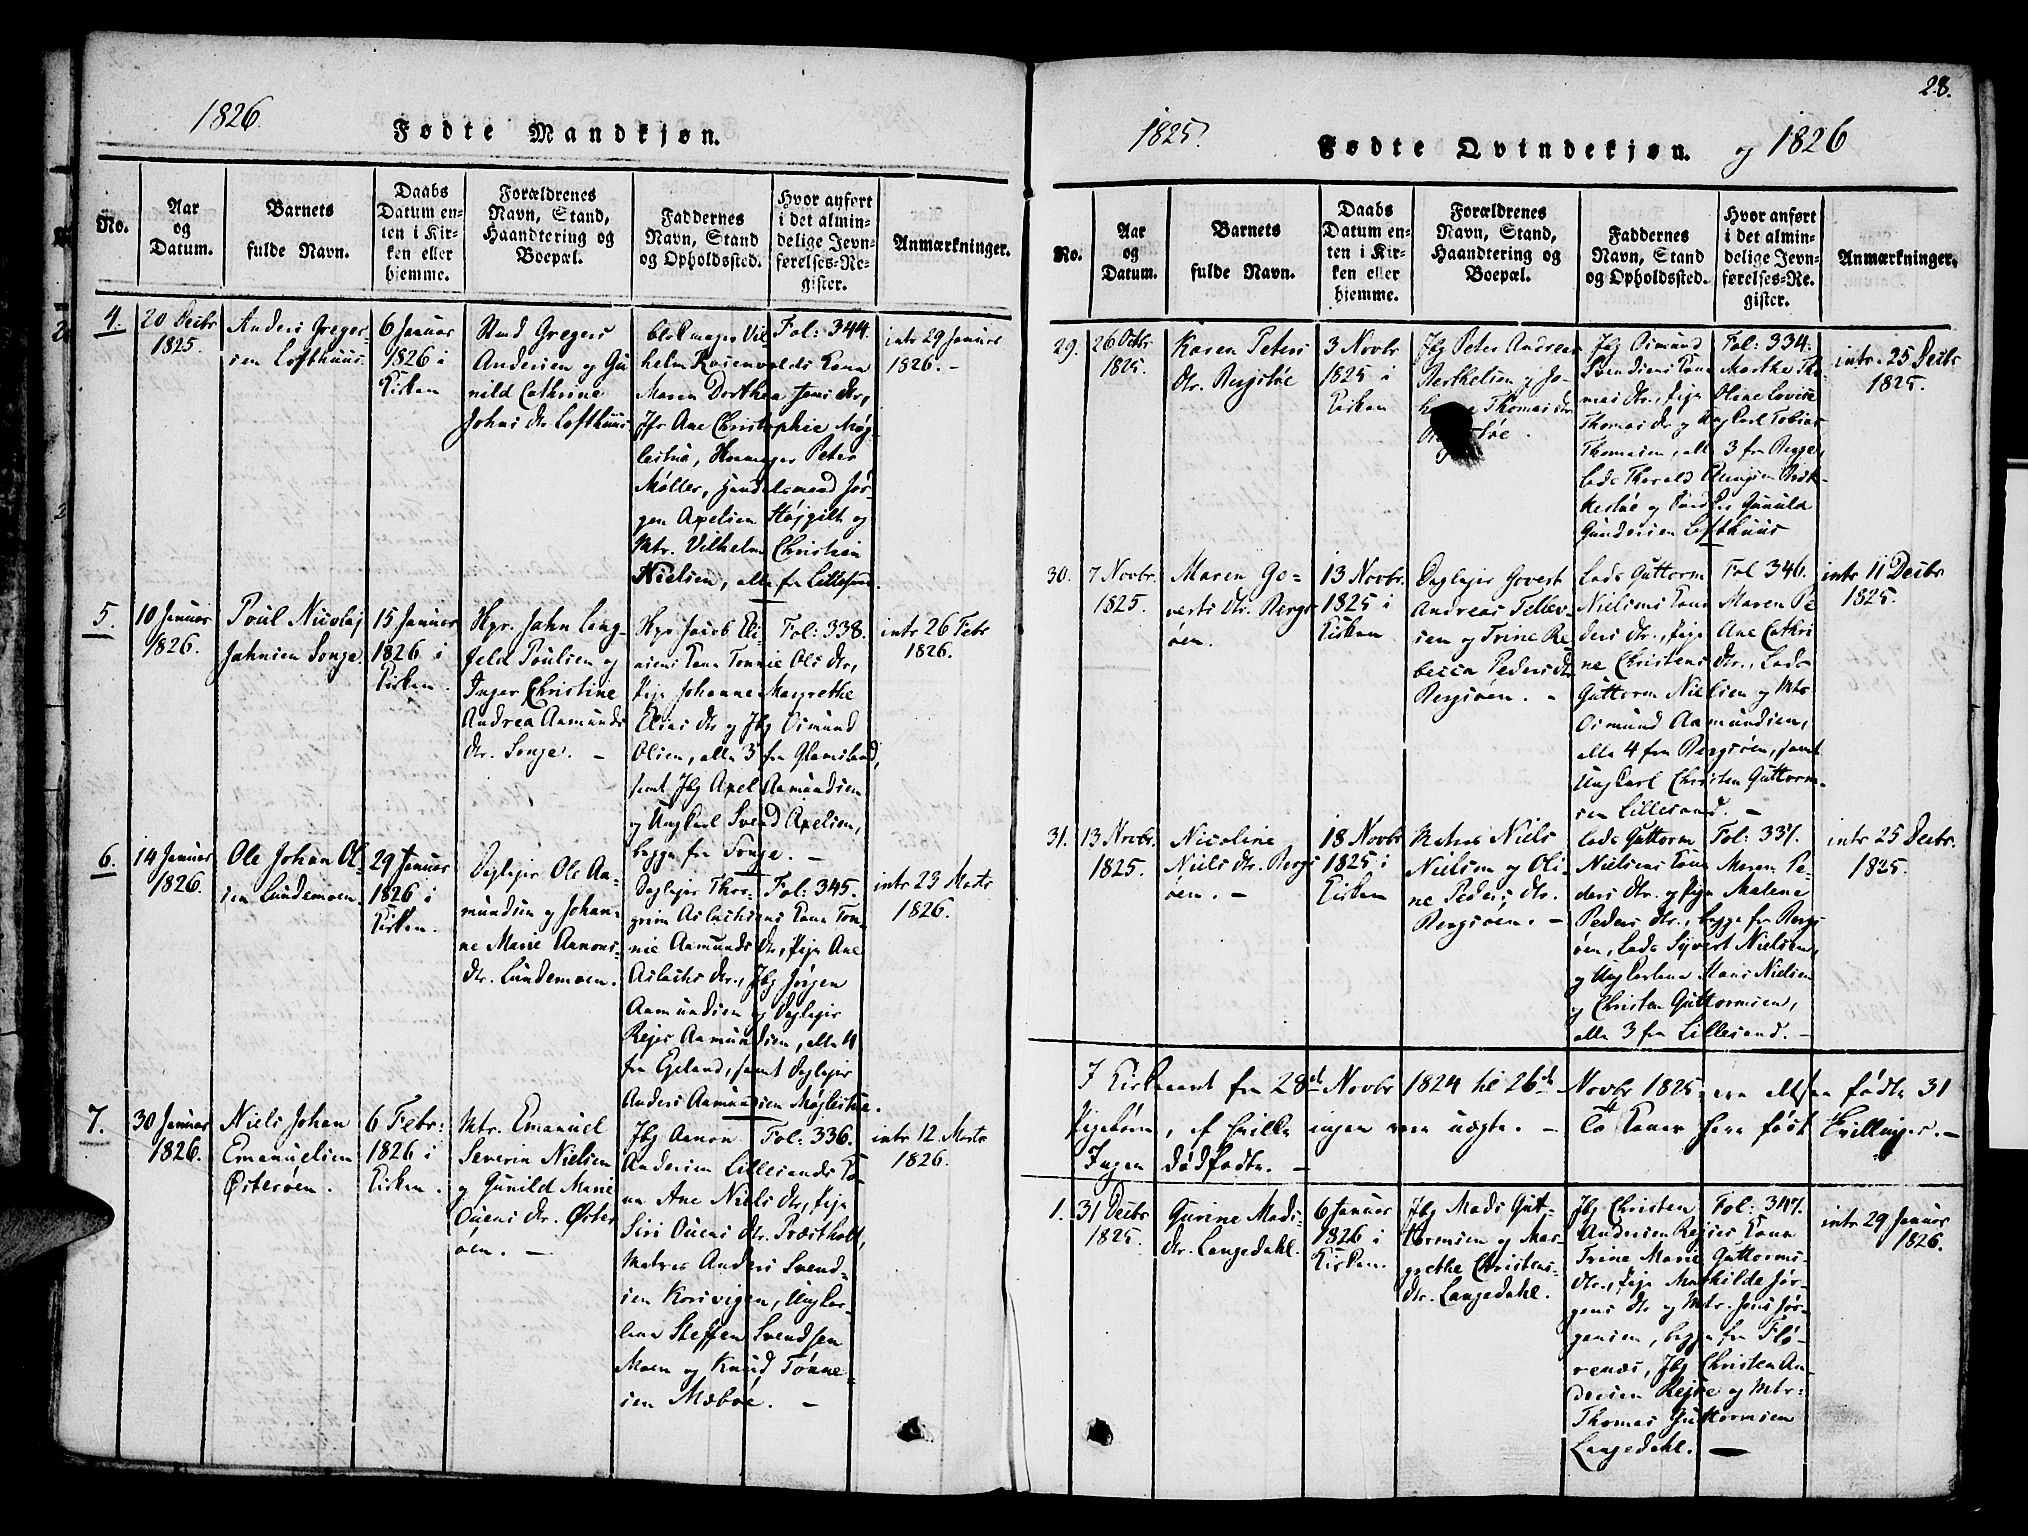 1826.
Fødte Mandkjøn.
No.
Aar
og
Datum.
Barnets
fulde Navn.
Daabs
Datum en-
ten i Kir-
ken eller
hjemme.
Forældrenes
Navn, Stand,
Haandtering og
Boepæl.
Faddernes
Navn, Stand
og Opholdssted.
Hvor anført
i det almin-
delige Jevn-
førelses-Re-
gister.
Anmærkninger.
4.
20 Decbr
1825.
Anders Greger-
sen Lofthuus
6 Januar
1826 i
Kirken
Gregers
Andersen og Gu
nild Cathrine
Johns dtr Lofthuus
Blokmager Vil-
helm Rosenvolds Kona
Maren Dorthea Jens dtr,
Jfr Ane Christ Sophie Møg-
lestue, Peter
Møller, Handelsmand Jør-
gen Axelsen Højgilt og
Mtr. Vilhelm Christian
Nielsen, alle fra Lillesand.
Fol: 344
intr 29 Januar
1826. -
5.
10 Januar
1826.
Poul Nicolaj
Jahnsen Songe.
15 Januar
1826 i
Kirken.
Hgr. Jahn Lang-
feld Poulsen og
Inger Christine
Andrea Aamunds
dtr. Songe. -
Hgr. Jacob Eli-
asens Kona Tonnie Ols dtr,
Pige Johanne Margrethe
Elias dtr og Jbg Osmund
Olsen, alle 3 fra Glamsland,
samt Jbg Axel Aamundsen
og Ungkarl Svend Axelsen,
begge fra Songe. -
Fol: 338.
intr 26 Febr
1826.
6.
14 Januar
1826.
Ole Johan Ol-
sen Lundemoen.
29 Januar
1826 i
Kirken.
Daglejer Ole Aa-
mundsen og Johan-
ne Marie Aanons-
dtr. Lundemoen.
Daglejer Thor-
grim Aslachsens Kona Ton-
nie Aamunds dtr, Pige Ane
Aslachs dtr., Jbg Jørgen
Aamundsen og Daglejer
Rejer Aamundsen, alle 4
fra Egeland, samt Daglejer
Anders Aamundsen Møglestue.
Fol: 345.
intr 23 Marts
1826.
7.
30 Januar
1826.
Niels Johan
Emanuelsen
Østerøen.
6 Febr:
1826 i
Kirken.
Mtr. Emanuel
Severin Nielsen
og Gunild Marie
Ouens dtr. Øster
øen. -
Jbg Aanon
Andersen Lillesands Ko-
na Ane Niels dtr, Pige
Siri Ouens dtr. Præstholt,
Matros Anders Svend-
sen Korsvigen, Ungkar-
lene Steffen Svendsen
Moen og Knud Tønne-
sen Mæbøe. -
Fol: 336.
intr 12. Marts
1826.
28.
1825.
Fødte Qvindekjøn.
og 1826
No.
Aar
og
Datum.
Barnets
fulde Navn.
Daabs
Datum en-
ten i Kir-
ken eller
hjemme.
Forældrenes
Navn, Stand,
Haandtering og
Boepæl.
Faddernes
Navn, Stand
og Opholdssted.
Hvor anført
i det almin-
delige Jevn-
førelses-Re-
gister.
Anmærkninger.
29.
26 Octbr
1825.
Karen Peters
dtr. Bergstøe
3 Novbr
1825 i
Kirken
Jbg Peter Andreas
Berthelsen og Jo-
Thomas dtr
Jbg Osmund
Svendsens Kona Marthe Tho-
mas dtr., Pige Olene Lovise
Thomas dtr og Ungkarl Tobias
Thomasen, alle 3 fra
Lods Thorvald
og Gunuld
Gundersen Lofthuus
Fol: 334.
intr. 25 Decbr
1825.
30.
7 Novbr.
1825.
Maren Go-
verts dtr. Bergs-
øen.
13 Novbr.
1825 i
Kirken
Daglejer Govert
Andreas Tellev-
sen og Trine Re-
becca Peders dtr
Bergsøen. -
Lods Guttorm
Nielsens Kona Maren Pe
ders dtr., Pige Ane Cathri
ne Christens dtr., Lods
Guttorm Nielsen og Mtr
Osmund Aamundsen,
alle 4 fra Bergsøen, samt
Ungkarl Christen Guttorm-
sen Lillesand. -
Fol 346.
intr 11 Decbr
1825.
31.
13 Novbr.
1825.
Nicoline
Niels dtr. Bergs
øen. -
18 Novbr
1825 i
Kirken
Matros Niels
Nielsen og Oli-
ne Peders dtr.
Bergsøen. -
Lods Guttorm
Nielsens Kona Maren Pe-
ders dtr. og Pige Malene
Peders dtr., begge fra Bergs
øen, Lods Sivert Nielsen,
og Ungkarlene Hans Nielsen
og Christen Guttormsen,
alle 3 fra Lillesand. -
Fol: 337.
intr 25 Decbr.
1825.
I Kirkeaaret fra 28de Novbr 1824 til 26de Novbr 1825 ere altsaa fødte 31
Pigebørn, af hvilke ingen ere uægte. - To Koner have født Tvillinger. -
Ingen dødfødte. -
1.
31 Decbr
1825.
Gurine Mads
dtr. Langedahl.
6 Januar
1826 i
Kirken.
Jbg Mads Gut-
tormsen og Mar-
grethe Christens-
dtr. Langedahl.
Jbg Christen
Andersen Rejses Kona
Trine Marie Guttorms
dtr., Pige Mathilde Jør-
gens dtr og Mtr. Jens Jør-
gensen, begge fra Flø-
renæs, Jbg Christen An-
dersen Rejse og Mtr:
Thomas Guttormsen
Langedahl. -
Fol: 347.
intr 29 Januar
1826.